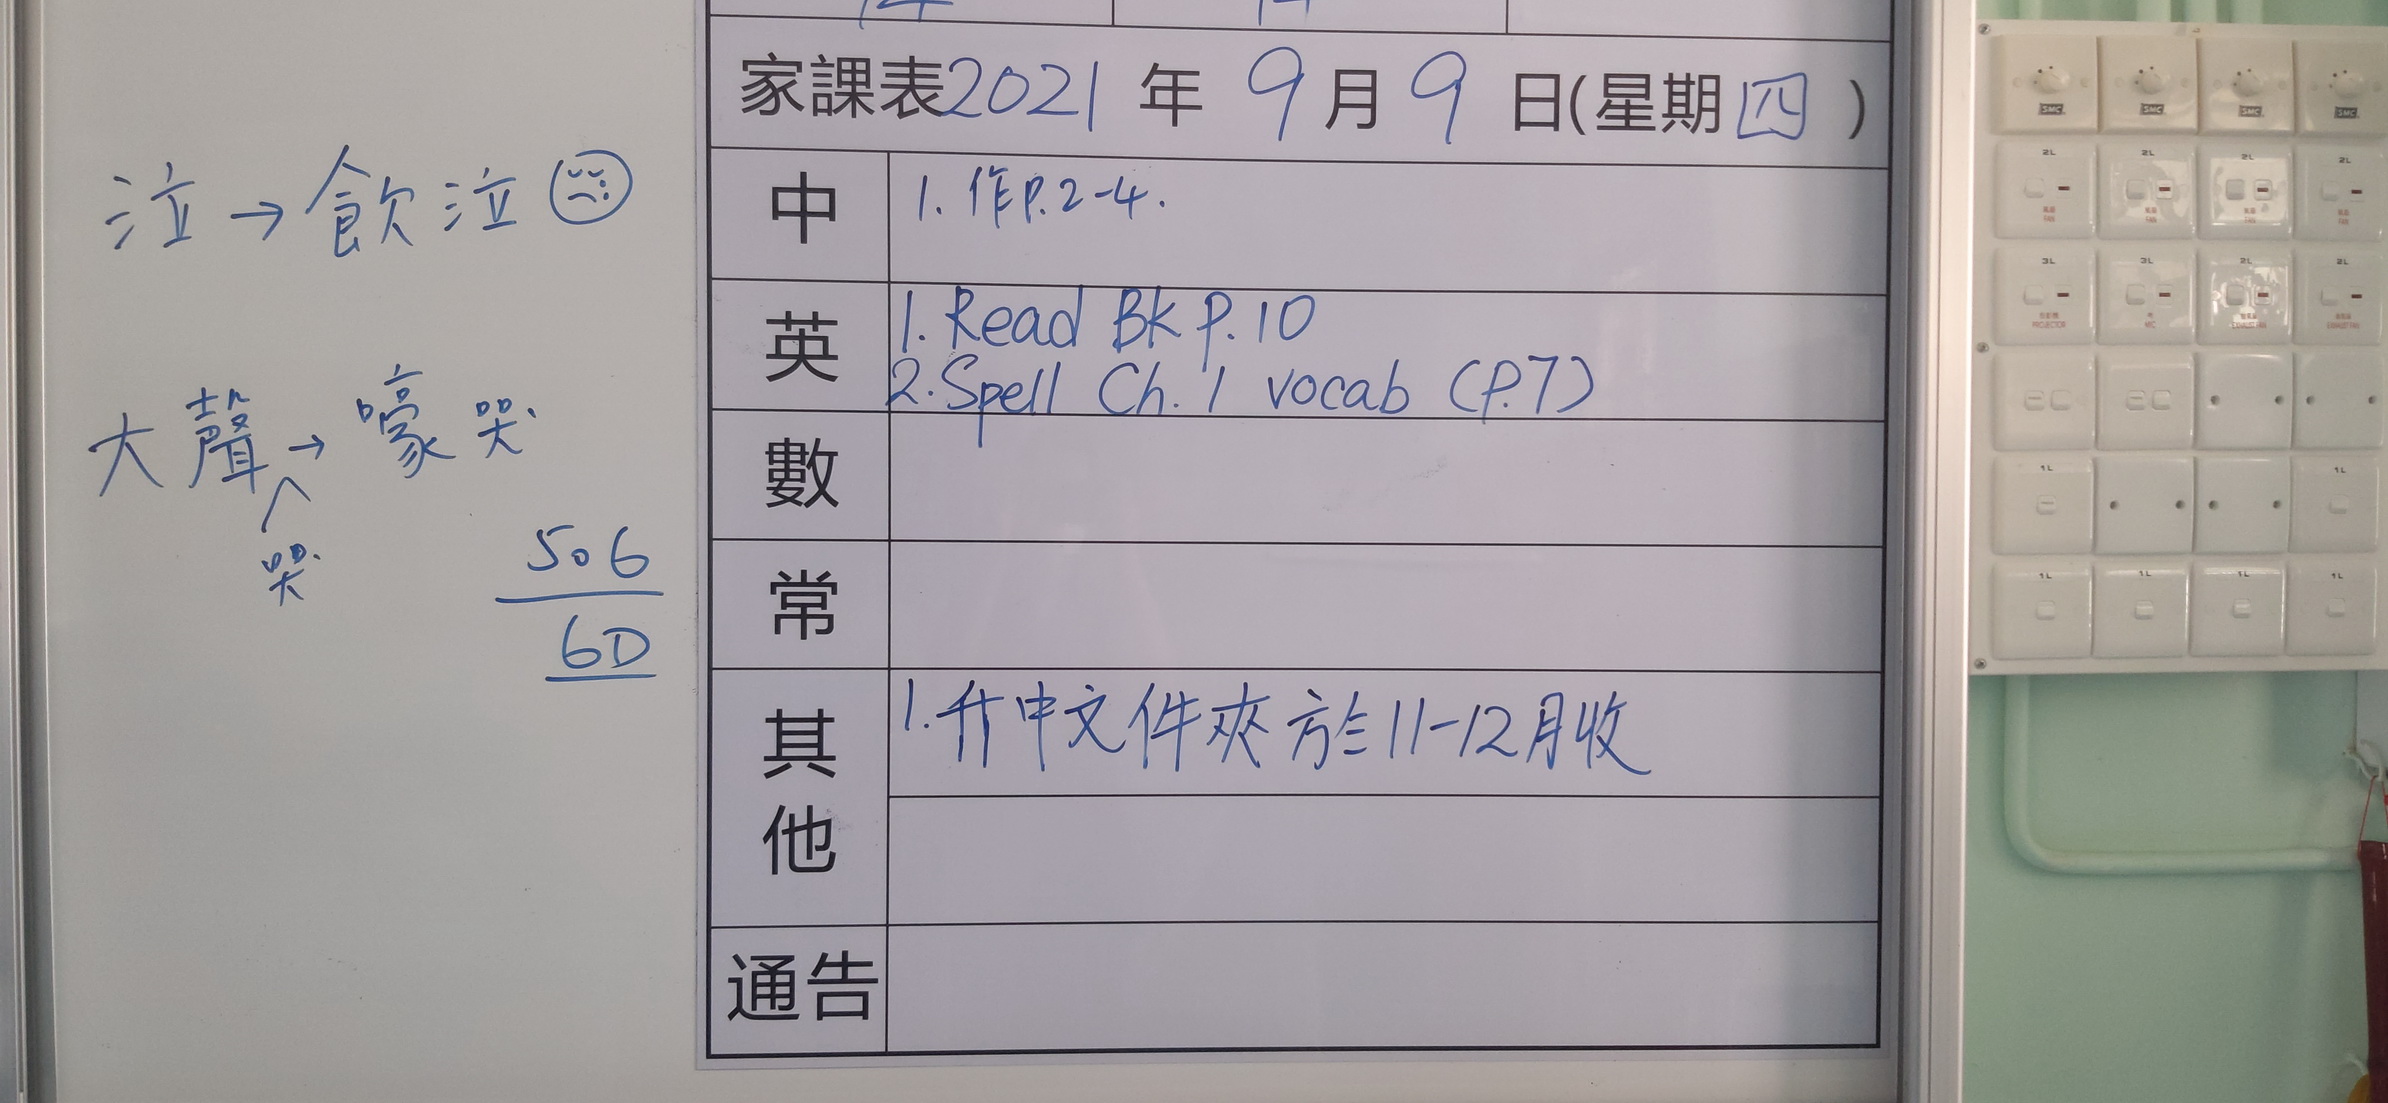 泣→飲泣
大聲→嚎哭
哭
506
6D
家課表2021年9月9日(星期四)
中
1. 作P.2-4.
英
1. Read Bk P.10
2. Spell Ch. 1 vocab (P.7)
數
常
其他
1. 升中文件夾方於11-12月收
通告
SMC SMC SMC SMC
2L 2L 2L 2L
FAN FAN FAN FAN
3L 3L 2L 2L
PROJECTOR MIC EXHAUST FAN EXHAUST FAN
1L 1L
1L 1L 1L 1L